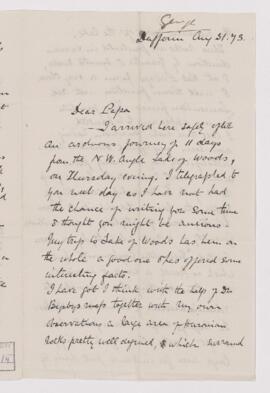 George
Dufferin Aug 31. 73.
Dear Papa
— I arrived here safely after
an arduous journey of 11 days
from the N.W. Angle Lake of Woods,
on Thursday evening. I telegraphed to
you next day as I have not had
the chance of writing you some time
& thought you might be anxious.
My trip to Lake of Woods has been on
the whole a good one & has offered some
interesting facts.
I have got I think with the help of Dr
Bigsbys map together with my own
observations a large area of Huronian
rocks pretty well defined, & which
14